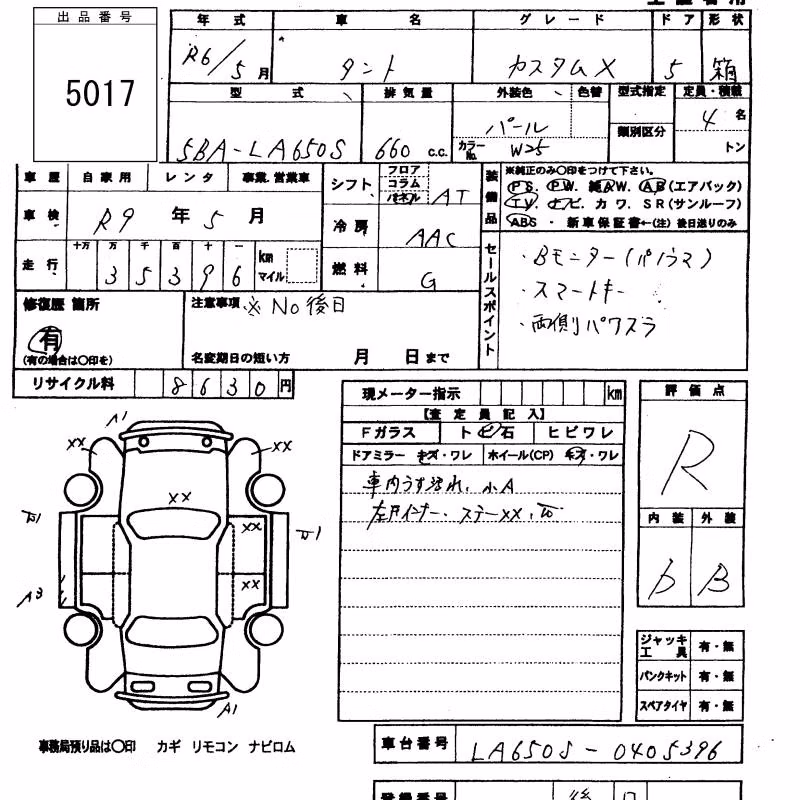 出品番号
5017
年式 車名 グレード ドア 形状
R6/5月 タント カスタムX 5 箱
型式 排気量 外装色 色替 型式指定 定員・積載
5BA-LA650S 660 c.c. パール 類別区分 4名
カラーNo. W25 トン
車歴 自家用 レンタ 事業.営業車
車検 R9年5月
走行 十万 万 千 百 十 一
3 5 3 9 6 km マイル
シフト フロア コラム パネル AT
冷房 AAC
燃料 G
装備品 ※純正のみ○印をつけて下さい。
PS. PW. 純AW. AB(エアバック)
TV. ナビ. カワ. SR(サンルーフ)
ABS・新車保証書←(注)後日送りのみ
セールスポイント
・Bモニター(パノラマ)
・スマートキー
・両側パワスラ
修復歴 箇所
有
(有の場合は○印を)
注意事項 ※No後日
名変期日の短い方 月 日まで
リサイクル料 8630円
現メーター指示 km
【査定員記入】
Fガラス トビ石 ヒビワレ
ドアミラー キズ・ワレ ホイール(CP) キズ・ワレ
車内うす汚れ、小A
左Fインナー、ステーXX、
評価点
R
内装 外装
D B
A1
XX XX
XX
XX
XX
A3
A1
ジャッキ工具 有・無
パンクキット 有・無
スペアタイヤ 有・無
事務局預り品は○印 カギ リモコン ナビロム
車台番号 LA650S-0405396